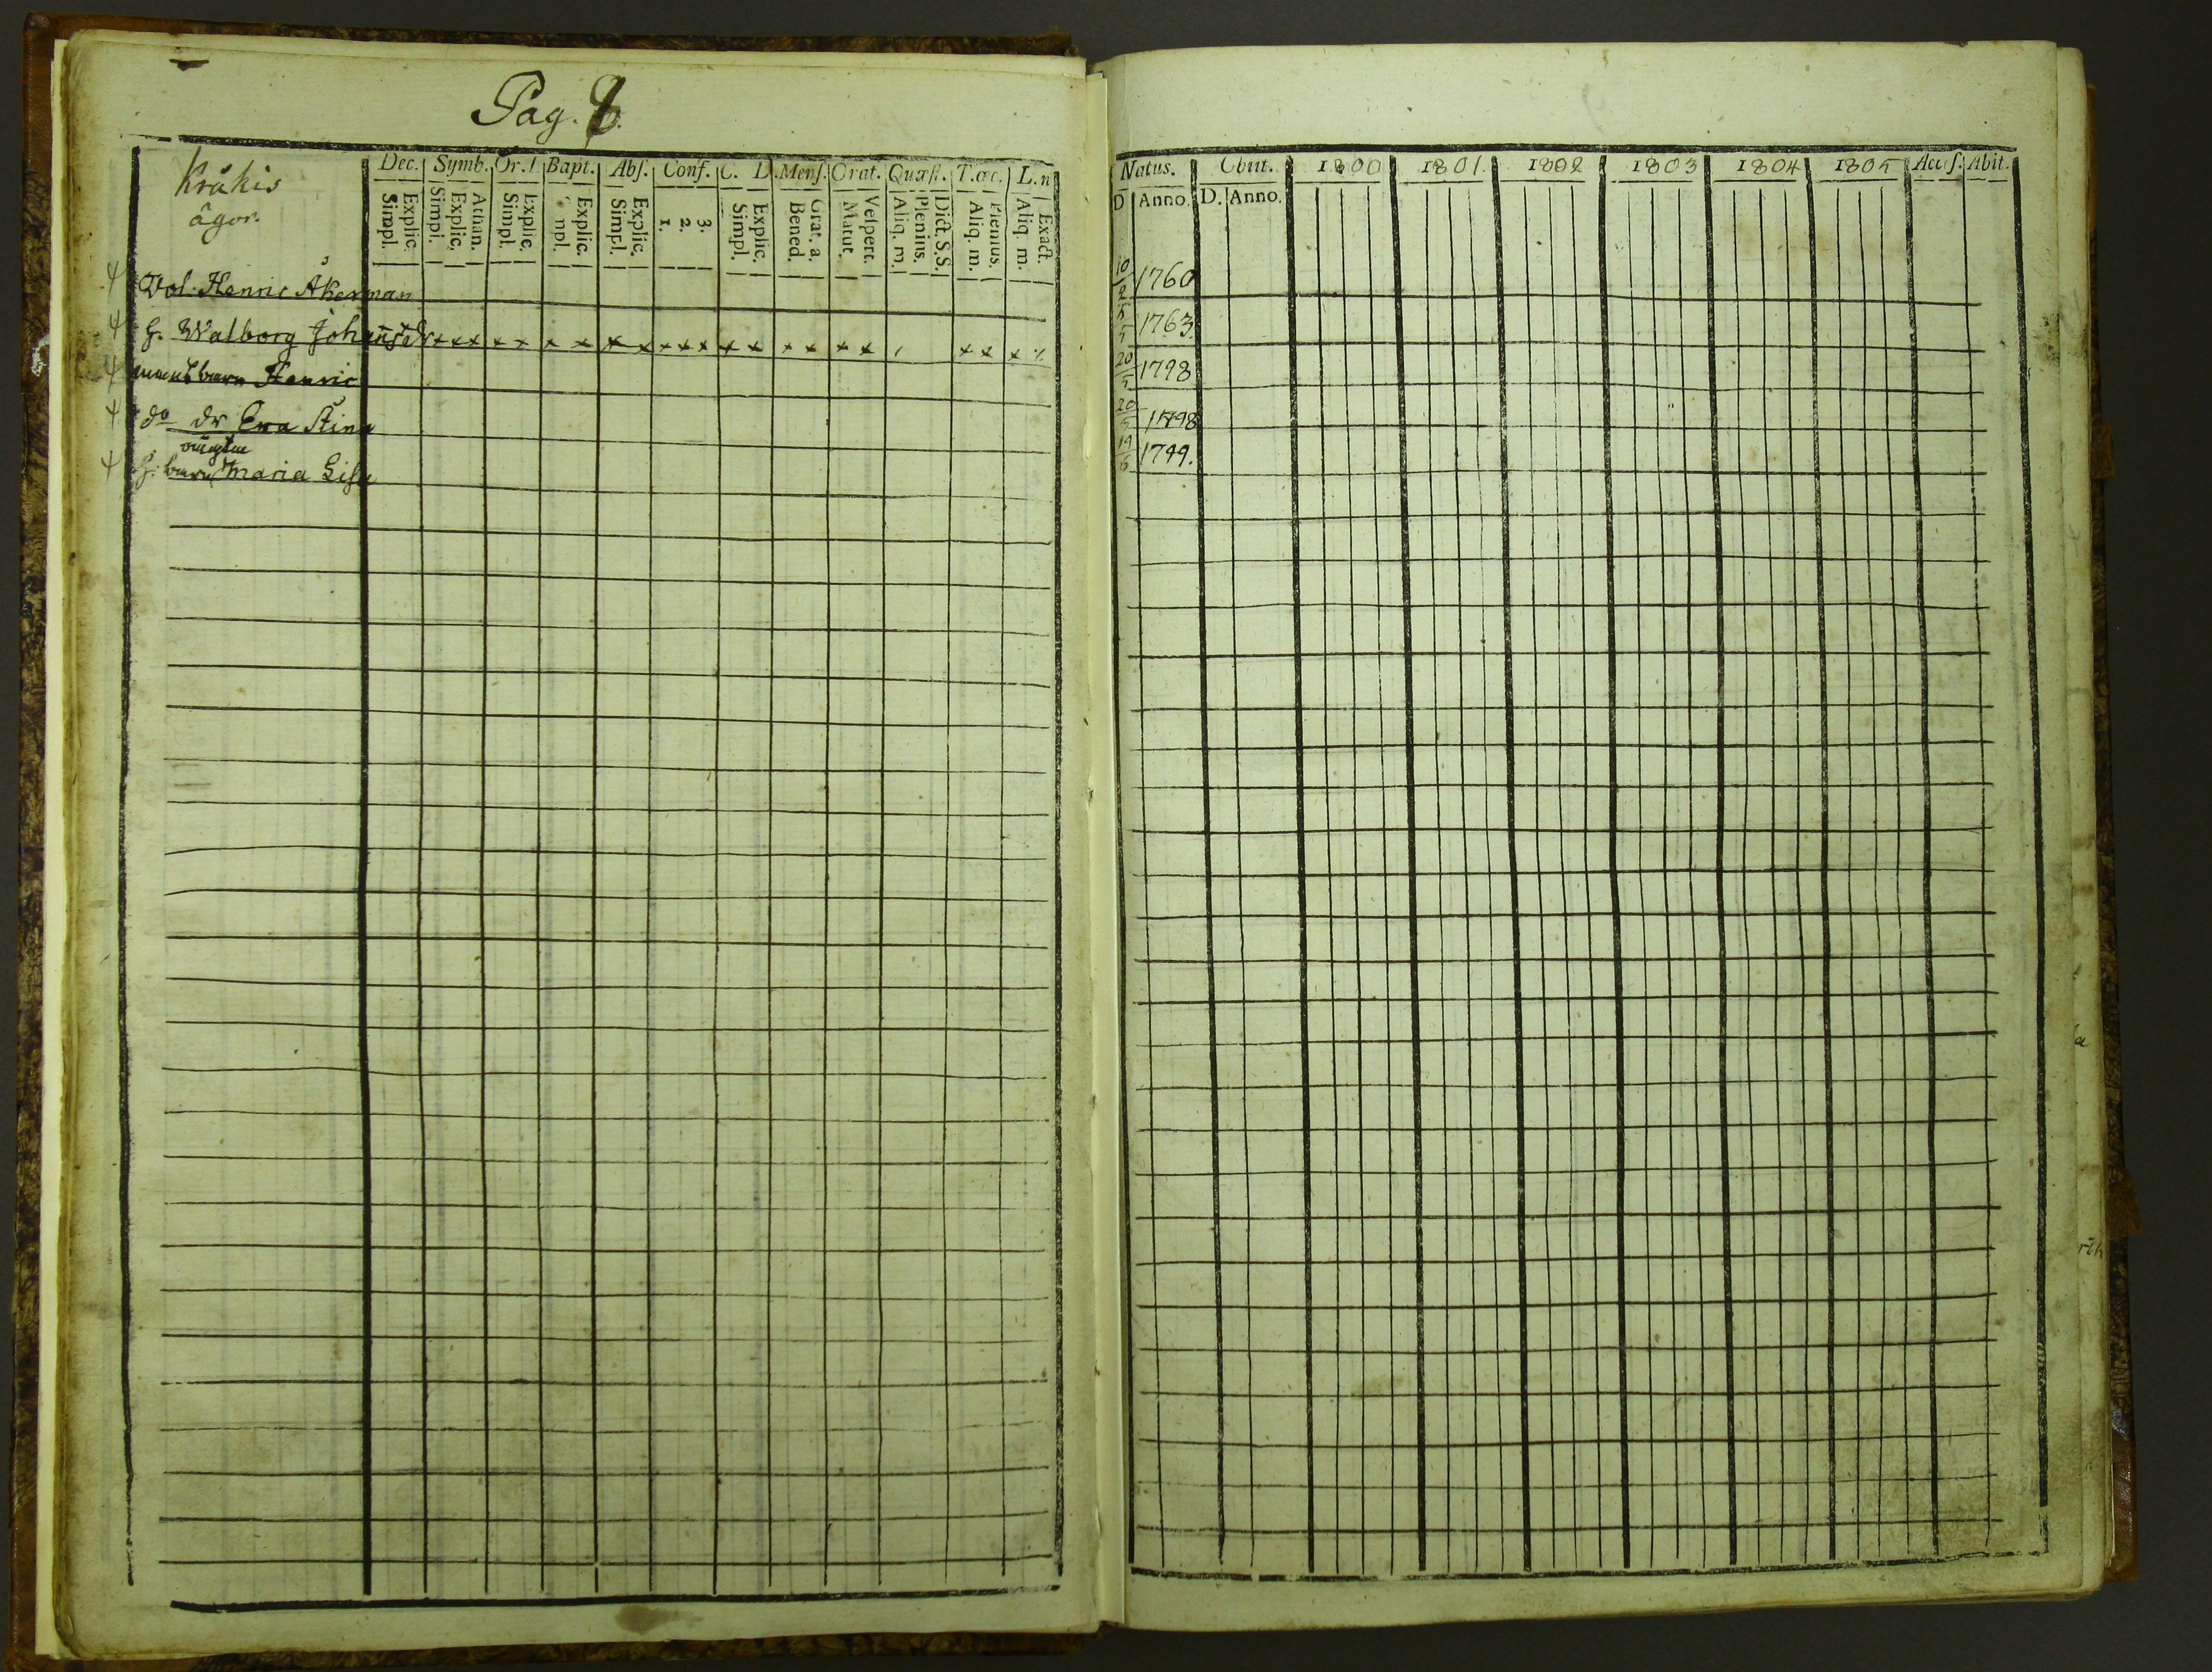 Pag. 8.
Kråkis
ägor.
Dec. Symb. Or. Bapt. Abſ. Conf. C. D. Menſ. Orat. Quæſt. T. œc. L. n
Explic. Simpl.
Athan. Explic. Simpl.
Explic. Simpl.
Explic. mpl.
Explic. Simpl.
3. 2. 1.
Explic. Simpl.
Grat. a. Bened.
Veſpert. Matut.
Dict. S.S. Plenius. Aliq. m.
Plenius. Aliq. m.
Exact. Aliq. m.
Vol. Henric Åkerman
H. Walborg Johansdr x x x x x x x x x x x x x x x x x x x x x x
barn Henric
do dr Eva Stina
H. barn Maria Lisa
Natus. Obiit. 1800 1801 1802 1803 1804 1805 Acceſ. Abit.
D Anno. D. Anno.
10/2 1760
5/5 1763
20/5 1798
20/5 1798
19/6 1799.